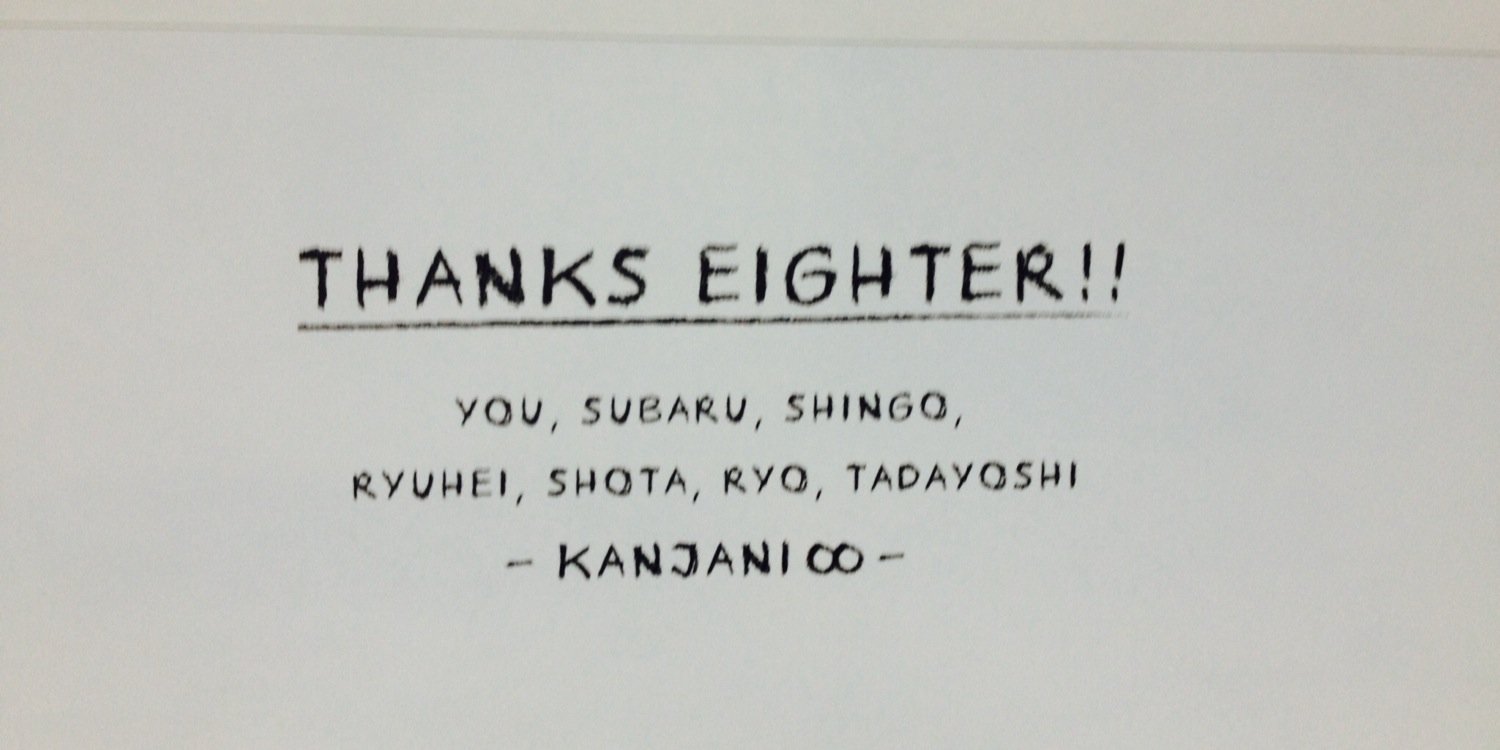 THANKS EIGHTER!!
YOU, SUBARU, SHINGO,
RYUHEI, SHOTA, RYO, TADAYOSHI
- KANJANI∞ -